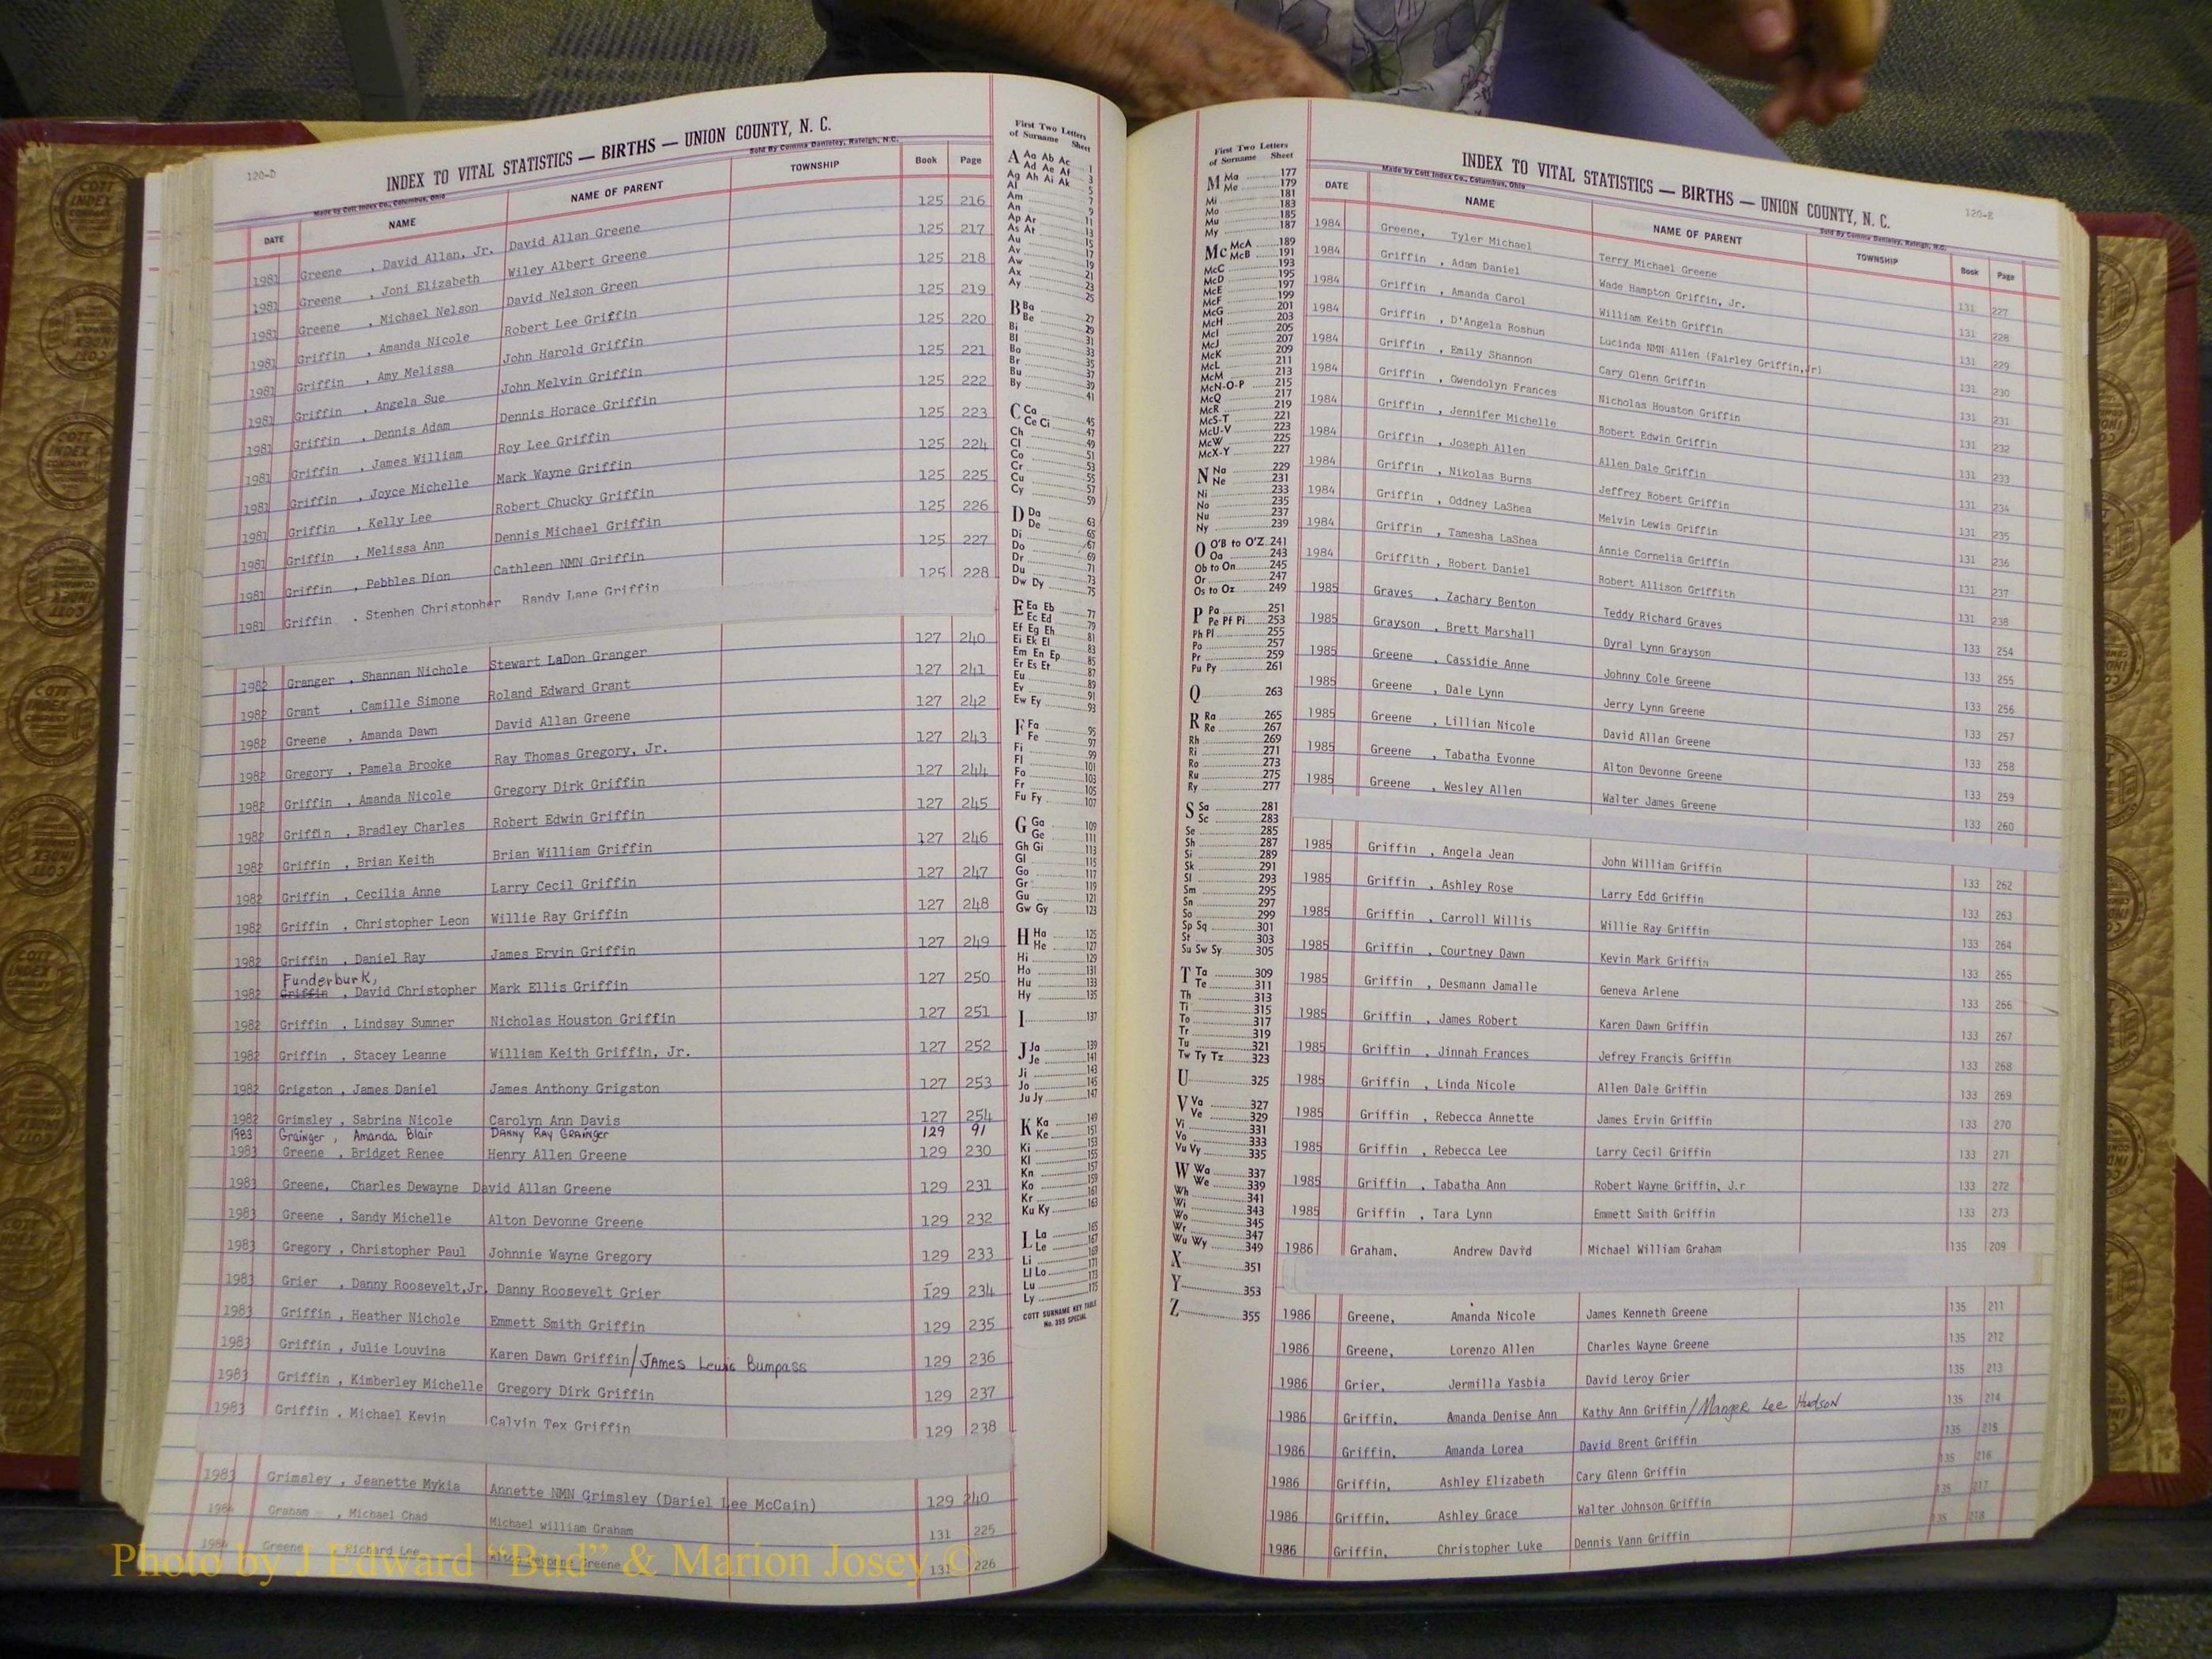 120-D
INDEX TO VITAL STATISTICS — BIRTHS — UNION COUNTY, N. C.
Made by Cott Index Co., Columbus, Ohio Sold By Comma Danieley, Raleigh, N.C.
DATE NAME NAME OF PARENT TOWNSHIP Book Page
1981 Greene , David Allan, Jr. David Allan Greene 125 216
1981 Greene , Joni Elizabeth Wiley Albert Greene 125 217
1981 Greene , Michael Nelson David Nelson Green 125 218
1981 Griffin , Amanda Nicole Robert Lee Griffin 125 219
1981 Griffin , Amy Melissa John Harold Griffin 125 220
1981 Griffin , Angela Sue John Melvin Griffin 125 221
1981 Griffin , Dennis Adam Dennis Horace Griffin 125 222
1981 Griffin , James William Roy Lee Griffin 125 223
1981 Griffin , Joyce Michelle Mark Wayne Griffin 125 224
1981 Griffin , Kelly Lee Robert Chucky Griffin 125 225
1981 Griffin , Melissa Ann Dennis Michael Griffin 125 226
1981 Griffin , Pebbles Dion Cathleen NMN Griffin 125 227
1981 Griffin , Stephen Christopher Randy Lane Griffin 125 228
1982 Granger , Shannan Nichole Stewart LaDon Granger 127 240
1982 Grant , Camille Simone Roland Edward Grant 127 241
1982 Greene , Amanda Dawn David Allan Greene 127 242
1982 Gregory , Pamela Brooke Ray Thomas Gregory, Jr. 127 243
1982 Griffin , Amanda Nicole Gregory Dirk Griffin 127 244
1982 Griffin , Bradley Charles Robert Edwin Griffin 127 245
1982 Griffin , Brian Keith Brian William Griffin 127 246
1982 Griffin , Cecilia Anne Larry Cecil Griffin 127 247
1982 Griffin , Christopher Leon Willie Ray Griffin 127 248
1982 Griffin , Daniel Ray James Ervin Griffin 127 249
Funderburk,
1982 Griffin , David Christopher Mark Ellis Griffin 127 250
1982 Griffin , Lindsay Sumner Nicholas Houston Griffin 127 251
1982 Griffin , Stacey Leanne William Keith Griffin, Jr. 127 252
1982 Grigston , James Daniel James Anthony Grigston 127 253
1982 Grimsley , Sabrina Nicole Carolyn Ann Davis 127 254
1983 Grainger , Amanda Blair Danny Ray Grainger 129 91
1983 Greene , Bridget Renee Henry Allen Greene 129 230
1983 Greene, Charles Dewayne David Allan Greene 129 231
1983 Greene , Sandy Michelle Alton Devonne Greene 129 232
1983 Gregory , Christopher Paul Johnnie Wayne Gregory 129 233
1983 Grier , Danny Roosevelt,Jr. Danny Roosevelt Grier 129 234
1983 Griffin , Heather Nichole Emmett Smith Griffin 129 235
1983 Griffin , Julie Louvina Karen Dawn Griffin/James Lewis Bumpass 129 236
1983 Griffin , Kimberley Michelle Gregory Dirk Griffin 129 237
1983 Griffin , Michael Kevin Calvin Tex Griffin 129 238
1983 Grimsley , Jeanette Mykia Annette NMN Grimsley (Dariel Lee McCain) 129 240
1984 Graham , Michael Chad Michael William Graham 131 225
1984 Greene , Richard Lee Alton Devonne Greene 131 226
First Two Letters
of Surname Sheet
A Aa Ab Ac 1
Ad Ae Af 3
Ag Ah Ai Ak 5
Al 7
Am 9
An 11
Ap Ar 13
As At 15
Au 17
Av 19
Aw 21
Ax 23
Ay 25
B Ba 27
Be 29
Bi 31
Bl 33
Bo 35
Br 37
Bu 39
By 41
C Ca 45
Ce Ci 47
Ch 49
Cl 51
Co 53
Cr 55
Cu 57
Cy 59
D Da 63
De 65
Di 67
Do 69
Dr 71
Du 73
Dw Dy 75
E Ea Eb 77
Ec Ed 79
Ef Eg Eh 81
Ei Ek El 83
Em En Ep 85
Er Es Et 87
Eu 89
Ev 91
Ew Ey 93
F Fa 95
Fe 97
Fi 99
Fl 101
Fo 103
Fr 105
Fu Fy 107
G Ga 109
Ge 111
Gh Gi 113
Gl 115
Go 117
Gr 119
Gu 121
Gw Gy 123
H Ha 125
He 127
Hi 129
Ho 131
Hu 133
Hy 135
I 137
J Ja 139
Je 141
Ji 143
Jo 145
Ju Jy 147
K Ka 149
Ke 151
Ki 153
Kl 155
Kn 157
Ko 159
Kr 161
Ku Ky 163
L La 165
Le 167
Li 169
Ll Lo 171
Lu 173
Ly 175
COTT SURNAME KEY TABLE
No. 355 SPECIAL
First Two Letters
of Surname Sheet
M Ma 177
Me 179
Mi 181
Mo 183
Mu 185
My 187
Mc McA 189
McB 191
McC 193
McD 195
McE 197
McF 199
McG 201
McH 203
McI 205
McJ 207
McK 209
McL 211
McM 213
McN-O-P 215
McQ 217
McR 219
McS-T 221
McU-V 223
McW 225
McX-Y 227
N Na 229
Ne 231
Ni 233
No 235
Nu 237
Ny 239
O O'B to O'Z 241
Oa 243
Ob to On 245
Or 247
Os to Oz 249
P Pa 251
Pe Pf Pi 253
Ph Pl 255
Po 257
Pr 259
Pu Py 261
Q 263
R Ra 265
Re 267
Rh 269
Ri 271
Ro 273
Ru 275
Ry 277
S Sa 281
Sc 283
Se 285
Sh 287
Si 289
Sk 291
Sl 293
Sm 295
Sn 297
So 299
Sp Sq 301
St 303
Su Sw Sy 305
T Ta 309
Te 311
Th 313
Ti 315
To 317
Tr 319
Tu 321
Tw Ty Tz 323
U 325
V Va 327
Ve 329
Vi 331
Vo 333
Vu Vy 335
W Wa 337
We 339
Wh 341
Wi 343
Wo 345
Wr 347
Wu Wy 349
X 351
Y 353
Z 355
120-E
INDEX TO VITAL STATISTICS — BIRTHS — UNION COUNTY, N. C.
Made by Cott Index Co., Columbus, Ohio Sold By Comma Danieley, Raleigh, N.C.
DATE NAME NAME OF PARENT TOWNSHIP Book Page
1984 Greene, Tyler Michael Terry Michael Greene 131 227
1984 Griffin , Adam Daniel Wade Hampton Griffin, Jr. 131 228
1984 Griffin , Amanda Carol William Keith Griffin 131 229
1984 Griffin , D'Angela Roshun Lucinda NMN Allen (Fairley Griffin,Jr) 131 230
1984 Griffin , Emily Shannon Cary Glenn Griffin 131 231
1984 Griffin , Gwendolyn Frances Nicholas Houston Griffin 131 232
1984 Griffin , Jennifer Michelle Robert Edwin Griffin 131 233
1984 Griffin , Joseph Allen Allen Dale Griffin 131 234
1984 Griffin , Nikolas Burns Jeffrey Robert Griffin 131 235
1984 Griffin , Oddney LaShea Melvin Lewis Griffin 131 236
1984 Griffin , Tamesha LaShea Annie Cornelia Griffin 131 237
1984 Griffith , Robert Daniel Robert Allison Griffith 131 238
1985 Graves , Zachary Benton Teddy Richard Graves 133 254
1985 Grayson , Brett Marshall Dyral Lynn Grayson 133 255
1985 Greene , Cassidie Anne Johnny Cole Greene 133 256
1985 Greene , Dale Lynn Jerry Lynn Greene 133 257
1985 Greene , Lillian Nicole David Allan Greene 133 258
1985 Greene , Tabatha Evonne Alton Devonne Greene 133 259
1985 Greene , Wesley Allen Walter James Greene 133 260
1985 Griffin , Angela Jean John William Griffin 133 262
1985 Griffin , Ashley Rose Larry Edd Griffin 133 263
1985 Griffin , Carroll Willis Willie Ray Griffin 133 264
1985 Griffin , Courtney Dawn Kevin Mark Griffin 133 265
1985 Griffin , Desmann Jamalle Geneva Arlene 133 266
1985 Griffin , James Robert Karen Dawn Griffin 133 267
1985 Griffin , Jinnah Frances Jefrey Francis Griffin 133 268
1985 Griffin , Linda Nicole Allen Dale Griffin 133 269
1985 Griffin , Rebecca Annette James Ervin Griffin 133 270
1985 Griffin , Rebecca Lee Larry Cecil Griffin 133 271
1985 Griffin , Tabatha Ann Robert Wayne Griffin, J.r 133 272
1985 Griffin , Tara Lynn Emmett Smith Griffin 133 273
1986 Graham, Andrew David Michael William Graham 135 209
1986 Greene, Amanda Nicole James Kenneth Greene 135 211
1986 Greene, Lorenzo Allen Charles Wayne Greene 135 212
1986 Grier, Jermilla Yasbia David Leroy Grier 135 213
1986 Griffin, Amanda Denise Ann Kathy Ann Griffin/Manger Lee Hudson 135 214
1986 Griffin, Amanda Lorea David Brent Griffin 135 215
1986 Griffin, Ashley Elizabeth Cary Glenn Griffin 135 216
1986 Griffin, Ashley Grace Walter Johnson Griffin 135 217
1986 Griffin, Christopher Luke Dennis Vann Griffin 135 218
Photo by J Edward “Bud” & Marion Josey ©